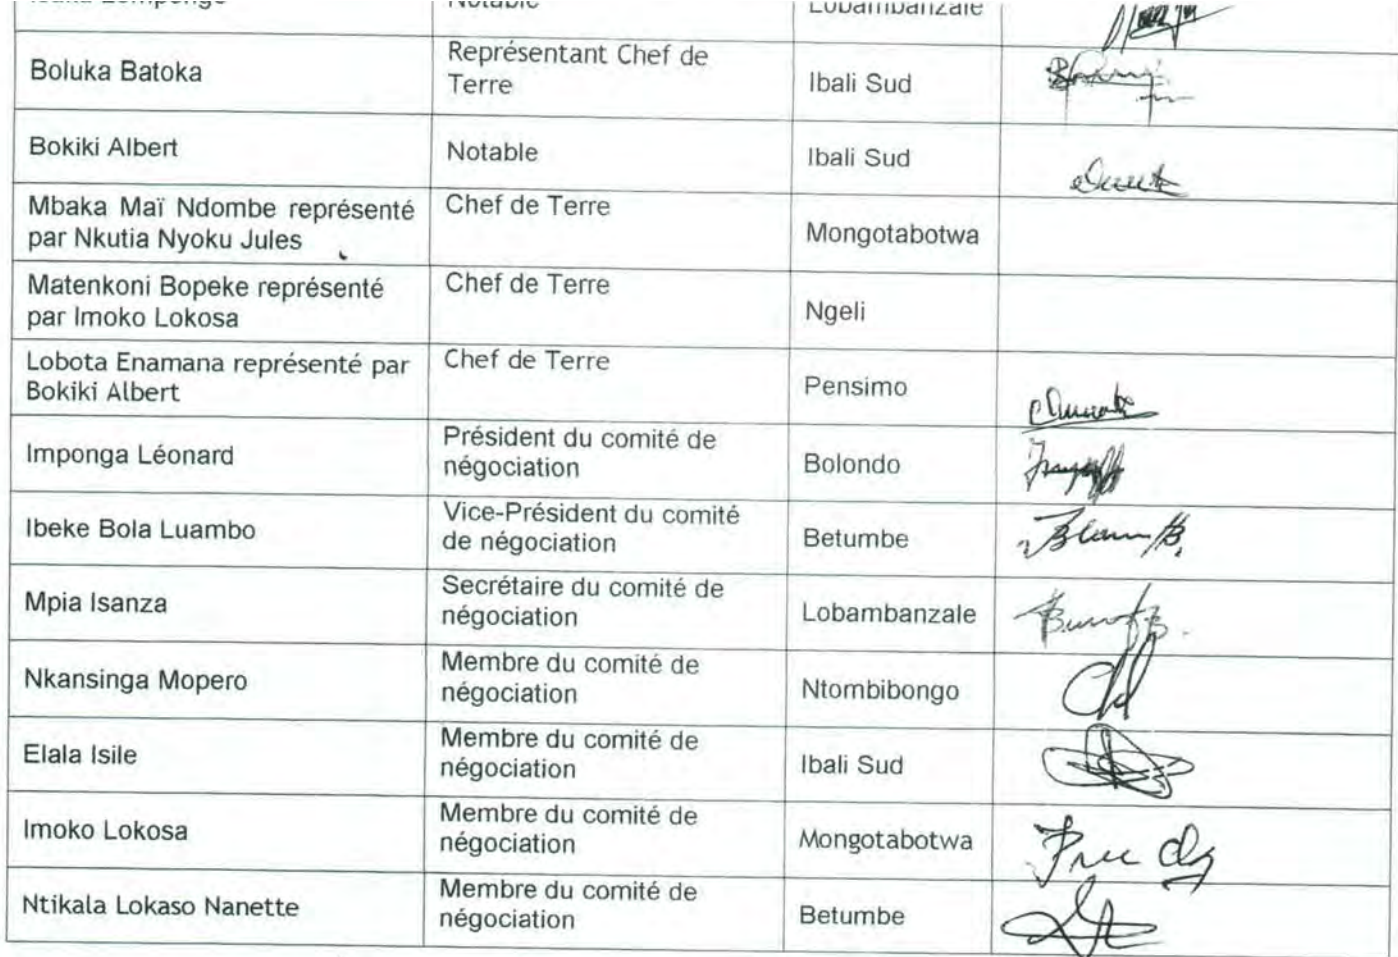 Notable
Lobambanzale
Boluka Batoka
Représentant Chef de
Terre
Ibali Sud
Bokiki Albert
Notable
Ibali Sud
Mbaka Maï Ndombe représenté
par Nkutia Nyoku Jules
Chef de Terre
Mongotabotwa
Matenkoni Bopeke représenté
par Imoko Lokosa
Chef de Terre
Ngeli
Lobota Enamana représenté par
Bokiki Albert
Chef de Terre
Pensimo
Imponga Léonard
Président du comité de
négociation
Bolondo
Ibeke Bola Luambo
Vice-Président du comité
de négociation
Betumbe
Mpia Isanza
Secrétaire du comité de
négociation
Lobambanzale
Nkansinga Mopero
Membre du comité de
négociation
Ntombibongo
Elala Isile
Membre du comité de
négociation
Ibali Sud
Imoko Lokosa
Membre du comité de
négociation
Mongotabotwa
Ntikala Lokaso Nanette
Membre du comité de
négociation
Betumbe